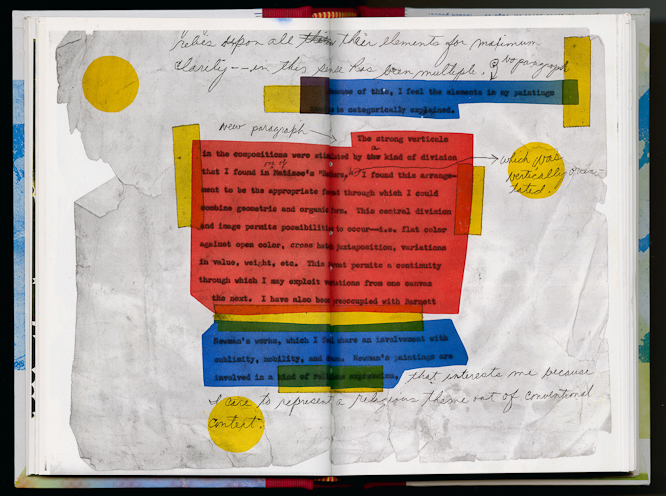 relies upon all their elements for maximum
clarity -- in this sense has been multiple. No paragraph
Because of this, I feel the elements in my paintings
is categorically explained.
New paragraph
The strong verticals
in the compositions were stimulated by a kind of division
that I found in Matisse's I found this arrange-
which was
vertically orien-
tated.
ment to be the appropriate through which I could
combine geometric and organic This central division
and image permits possibilities to occur--i.e. flat color
against open color, cross hatch juxtaposition, variations
in value, weight, etc. This permits a continuity
through which I may exploit variations from one canvas
the next. I have also been preoccupied with Barnett
Newman's works, which I feel share an involvement with
sublimity, nobility, and Newman's paintings are
involved in a kind of religious expression, that interests me because
I care to represent a religious theme out of conventional
context.